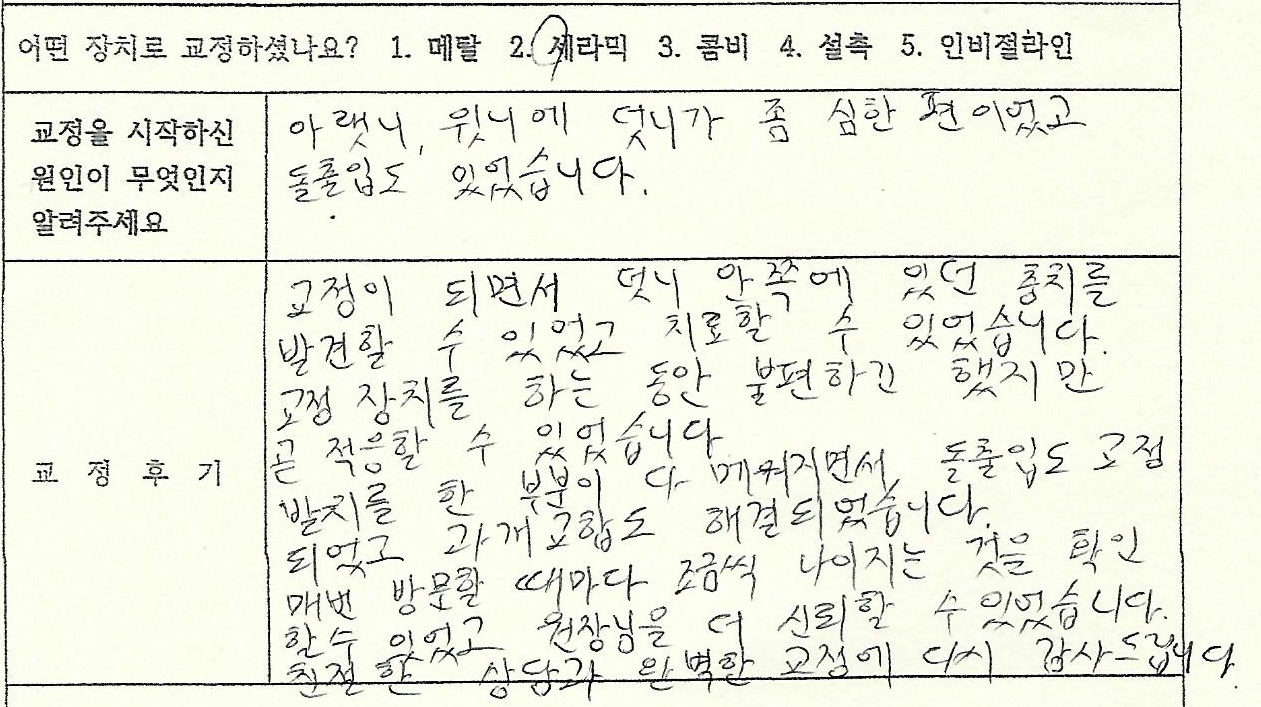 어떤 장치로 교정하셨나요? 1. 메탈 2. 세라믹 3. 콤비 4. 설측 5. 인비절라인
교정을 시작하신
원인이 무엇인지
알려주세요
아랫니, 윗니에 덧니가 좀 심한 편이었고
돌출입도 있었습니다.
교정후기
교정이 되면서 덧니 안쪽에 있던 충치를
발견할 수 있었고 치료할 수 있었습니다.
교정 장치를 하는 동안 불편하긴 했지만
곧 적응할 수 있었습니다
발치를 한 부분이 다 메워지면서 돌출입도 교정
되었고 과개교합도 해결되었습니다.
매번 방문할 때마다 조금씩 나아지는 것을 확인
할수 있었고 원장님을 더 신뢰할 수 있었습니다.
친절한 상담과 완벽한 교정에 다시 감사드립니다